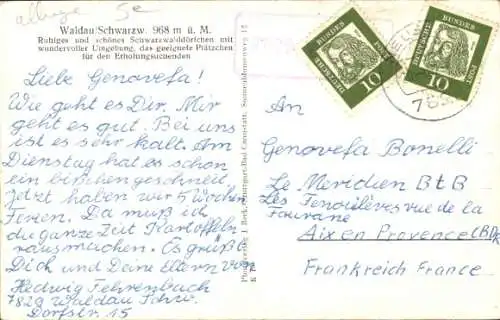 Waldau/Schwarzw. 968 m ü. M.
Ruhiges und schönes Schwarzwalddörfchen mit
wundervoller Umgebung, das geeignete Plätzchen
für den Erholungsuchenden
Liebe Genovefa!
Wie geht es Dir. Mir
geht es gut. Bei uns
ist es sehr kalt. Am
Dienstag hat es schon
ein bißchen geschneit
Jetzt haben wir 5 Wochen
Ferien. Da muß ich
die ganze Zeit Kartoffeln
rausmachen. Es grüßt
Dich und Deine Eltern von
Hedwig Fehrenbach
7829 Waldau Schw.
Dorfstr. 15
DEUTSCHE BUNDESPOST
10
DEUTSCHE BUNDESPOST
10
An
Genovefa Bonelli
Le Meridien BtB
Les Fenouilères vue de la
Fourane
Aix en Provence (BDR)
Frankreich France